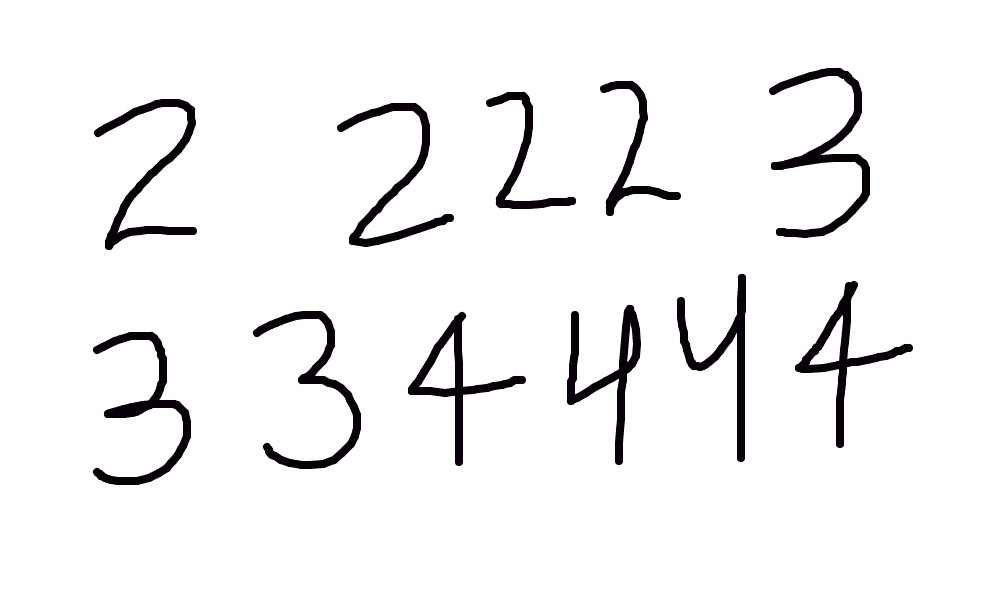 2 2 2 2 3
3 3 4 4 4 4